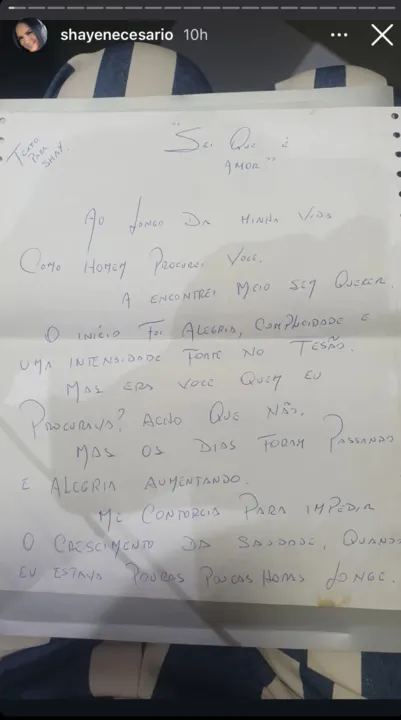 shayenecesario 10h
Texto
Para
Shay.
"Sei Que é
Amor"
Ao Longo Da Minha Vida
Como Homem Procurei Voce.
A encontrei meio sem querer.
O início foi Alegria, Complicidade e
uma intensidade forte no Tesão.
Mas era voce quem eu
Procurava? Acho Que não.
Mas os dias foram Passando
e Alegria aumentando.
Me contorcia para impedir
o crescimento da saudade, quando
eu estava poucas poucas horas longe.